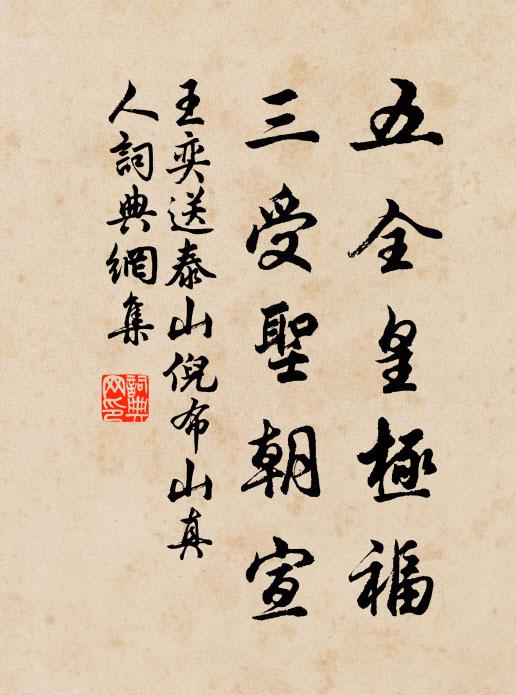 五全皇極福
三受聖朝宣
王奕送泰山倪布山真
人詞典網集
詞典
网印